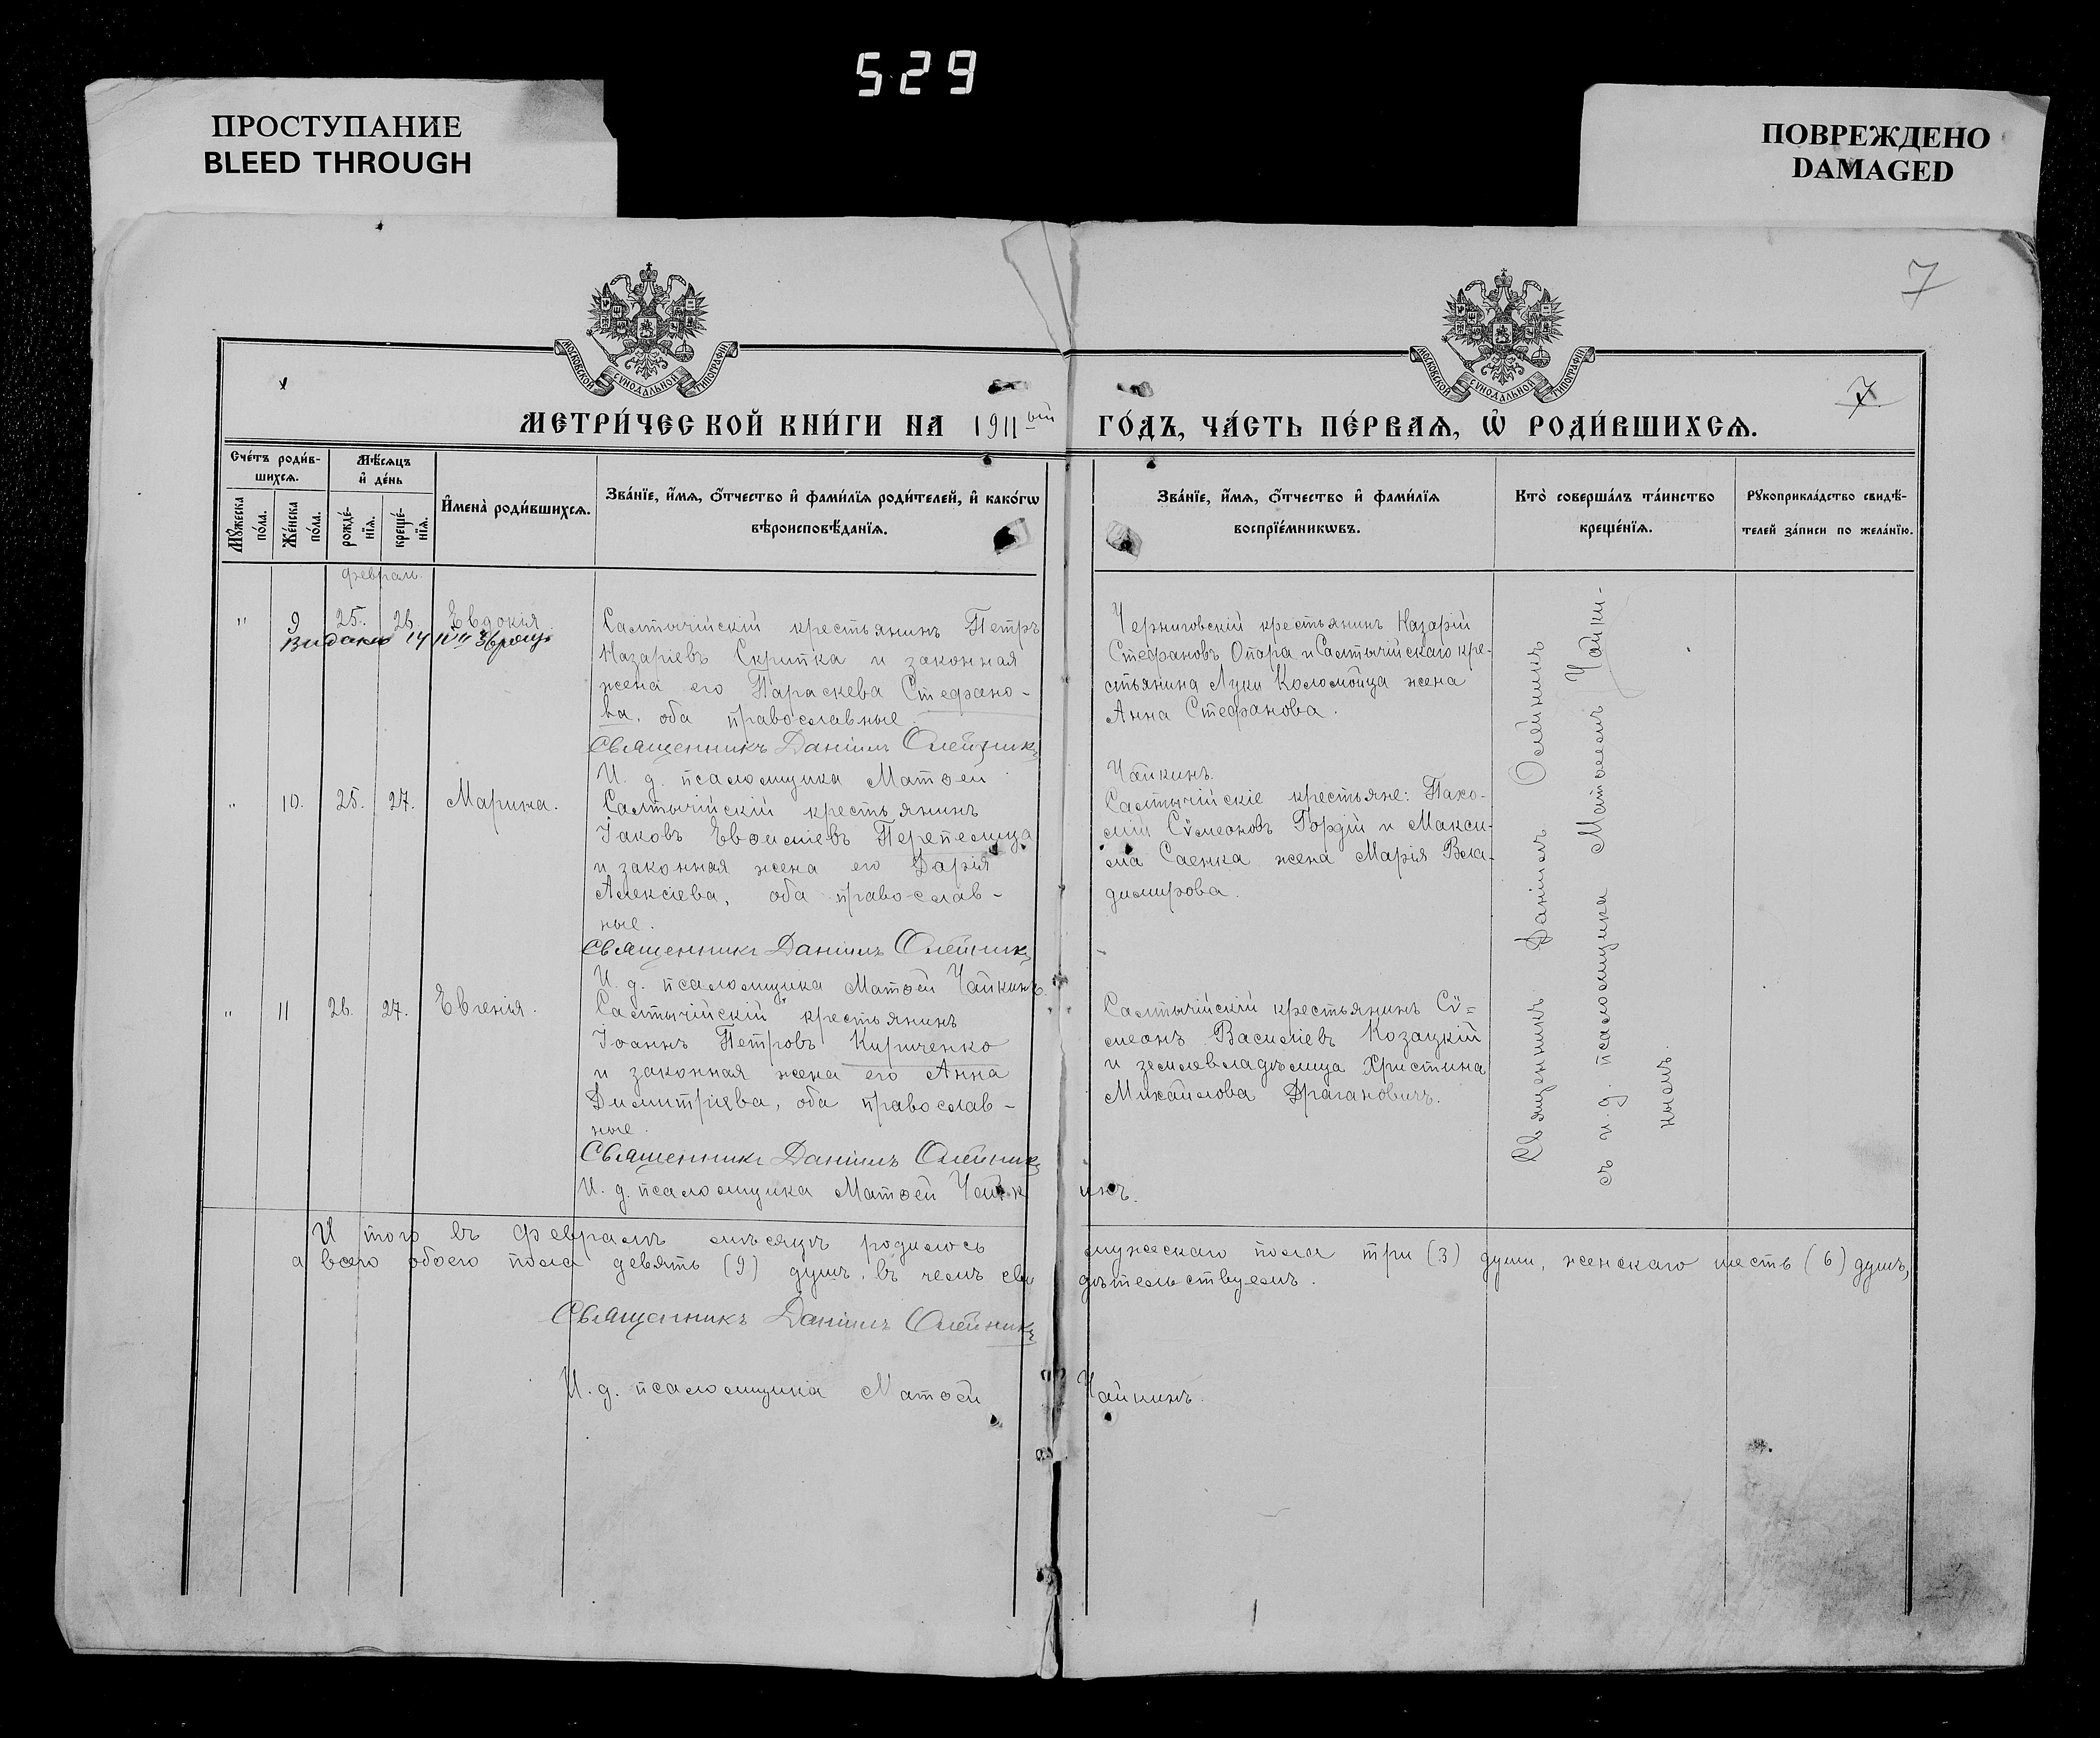 529
ПРОСТУПАНИЕ
BLEED THROUGH
ПОВРЕЖДЕНО
DAMAGED
7
МОСКОВСКОЙ СѴНОДАЛЬНОЙ ТИПОГРАФІИ
МОСКОВСКОЙ СѴНОДАЛЬНОЙ ТИПОГРАФІИ
7
МЕТРИ́ЧЕСКОЙ КНИ́ГИ НА 1911ый ГО́ДЪ, ЧА́СТЬ ПЕ́РВАѦ, Ѡ҆ РОДИ́ВШИХСѦ.
Сче́тъ роди́в-
шихсѧ.
Мꙋ́жеска
по́ла.
Же́нска
по́ла.
Мѣ́сѧцъ
и҆ де́нь
рожде́-
нїѧ.
креще́-
нїѧ.
И҆мена̀ роди́вшихсѧ.
Зва́нїе, и҆́мѧ, ѻ҆́тчество и҆ фами́лїѧ роди́телей, и҆ како́гѡ
вѣроисповѣ́данїѧ.
Зва́нїе, и҆́мѧ, ѻ҆́тчество и҆ фами́лїѧ
воспрїе́мникѡвъ.
Кто̀ соверша́лъ та́инство
креще́нїѧ.
Рꙋкоприкла́дство свидѣ́-
телей за́писи по жела́нїю.
феврал.
" 9 25. 26. Евдокія
Видано 14 IV 36 року
Салтычійскій крестьянинъ Петръ
Назаріевъ Скрипка и законная
жена его Параскева Стефано-
ва, оба православные.
Священникъ Даніилъ Олейникъ
И. д. псаломщика Матѳей Чайкинъ.
Черниговскій крестьянинъ Назарій
Стефановъ Опара и Салтычійскаго кре-
стьянина Луки Коломойца жена
Анна Стефанова.
" 10. 25. 27. Марина.
Салтычійскій крестьянинъ
Іаковъ Евѳиміевъ Перепелица
и законная жена его Дарія
Алексіева, оба православ-
ные.
Священникъ Даніилъ Олейникъ
И. д. псаломщика Матѳей Чайкинъ
Салтычійскіе крестьяне: Пахо-
мій Сѵмеоновъ Гордій и Макси-
ма Саенка жена Марія Вла-
димирова.
" 11 26. 27. Евгенія.
Салтычійскій крестьянинъ
Іоаннъ Петровъ Кириченко
и законная жена его Анна
Димитріева, оба православ-
ные.
Священникъ Даніилъ Олейникъ
И. д. псаломщика Матѳей Чайкинъ.
Салтычійскій крестьянинъ Сѵ=
меонъ Василіевъ Козацкій
и землевладѣлица Христина
Михайлова Драгановичъ.
Священникъ Даніилъ Олейникъ
съ и. д. псаломщика Матѳеемъ Чайки-
нымъ.
Итого въ февралѣ мѣсяцѣ родилось мужескаго пола три (3) души, женскаго шесть (6) душъ,
а всего обоего пола девять (9) душъ, въ чемъ свидѣтельствуемъ.
Священникъ Даніилъ Олейникъ
И. д. псаломщика Матѳей Чайкинъ.